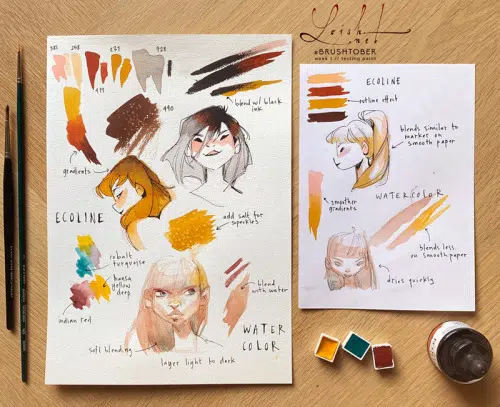 Loish
.net
#BRUSHTOBER
week 1 // testing paint
258
231
920
411
490
blend w/ black
ink
gradients
ECOLINE
add salt for
speckles
cobalt
turquoise
hansa
yellow
deep
indian red
blend
with water
soft blending
WATER
COLOR
layer light to dark
ECOLINE
outline effect
blends similar to
marker on
smooth paper
smoother
gradients
WATERCOLOR
blends less
on smooth paper
dries quickly